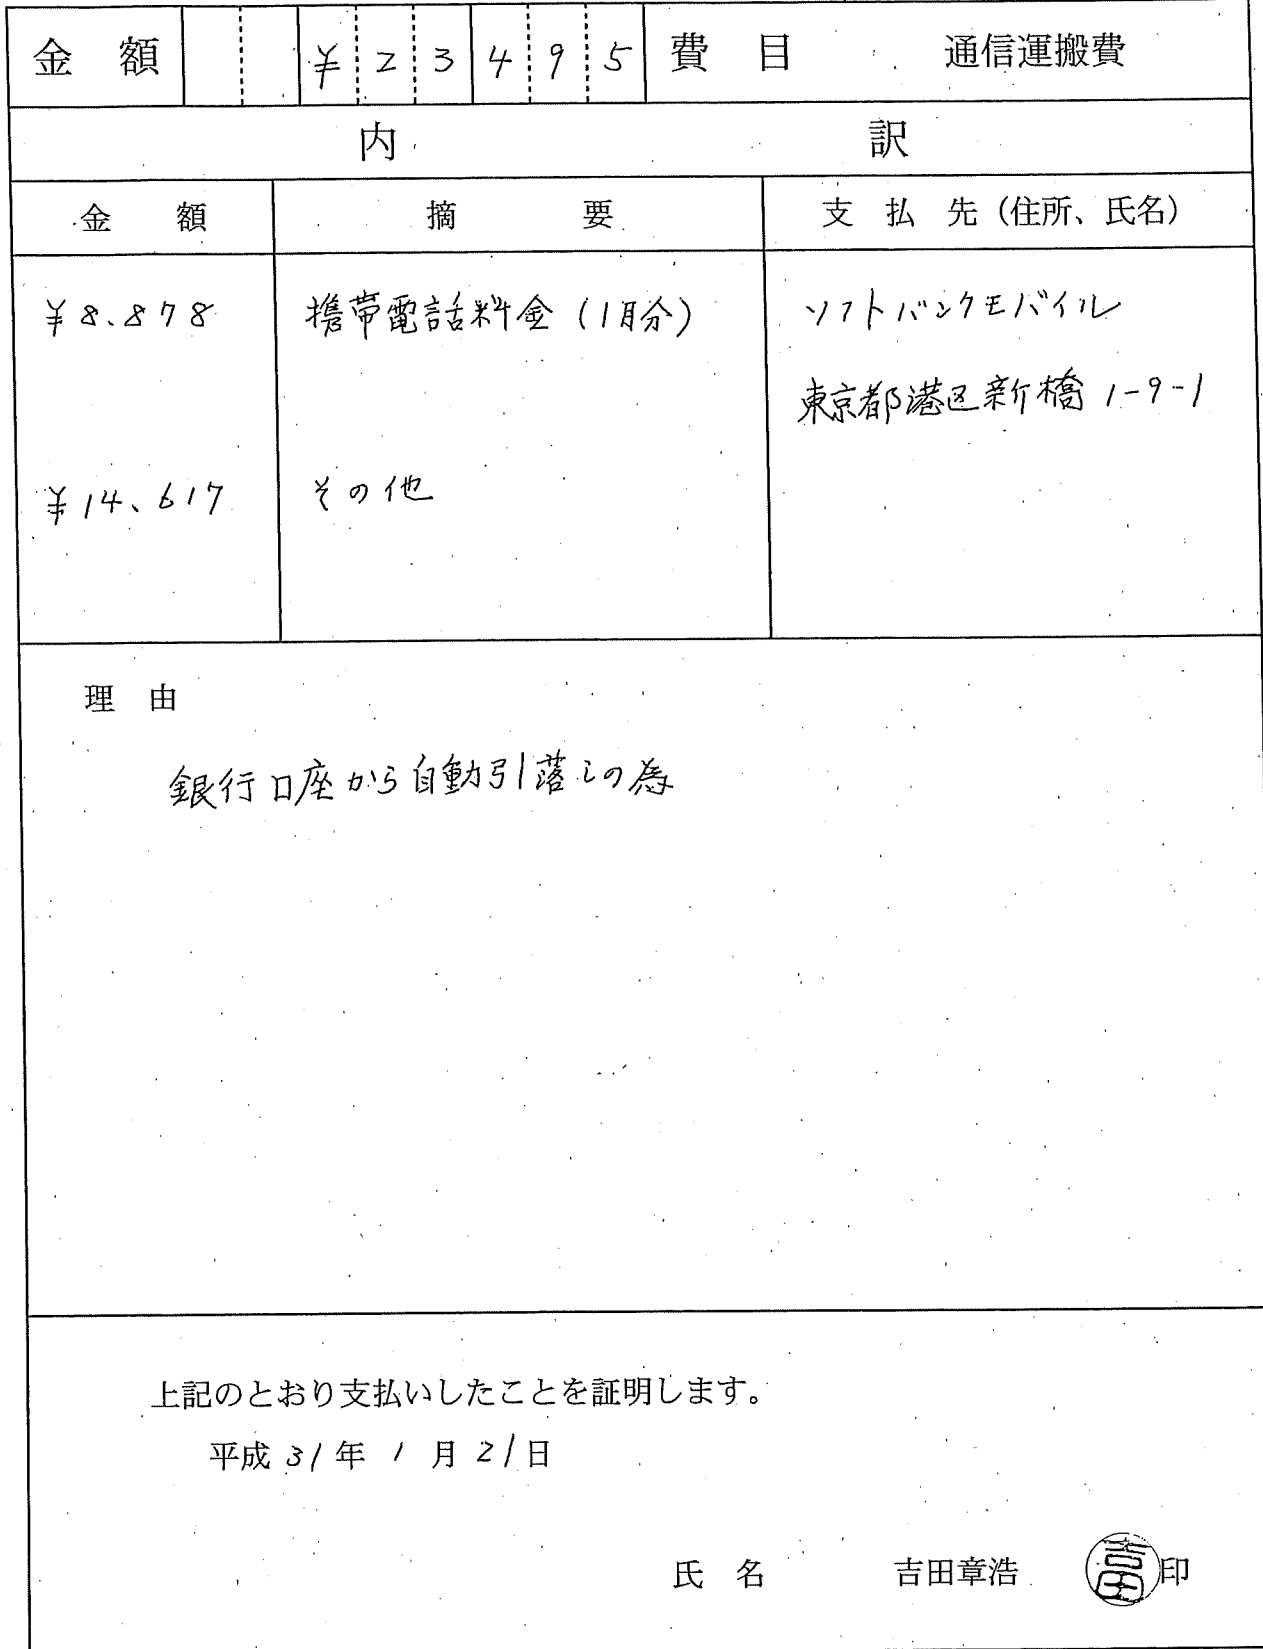 金額 ¥23495 費目 通信運搬費
内訳
金額 摘要 支払先（住所、氏名）
¥8.878 携帯電話料金（1月分） ソフトバンクモバイル
東京都港区新橋 1-9-1
¥14、617 その他
理由
銀行口座から自動引落しの為
上記のとおり支払いしたことを証明します。
平成31年1月21日
氏名 吉田章浩 吉田 印